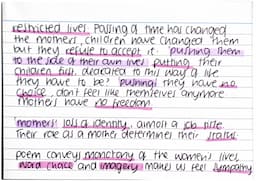 restricted lives. Passing of time has changed
the mothers, children have changed them
but they refuse to accept it. "pushing them
to the side of their own lives" putting their
children first, dedicated to this way of life
they have to be? 'pushing' they have no
choice, don't feel like themselves anymore
mothers have no freedom.
'mothers' loss of identity, almost a job title
Their role as a mother determines their status.
poem conveys monotony of the women's lives
word choice and imagery makes us feel sympathy